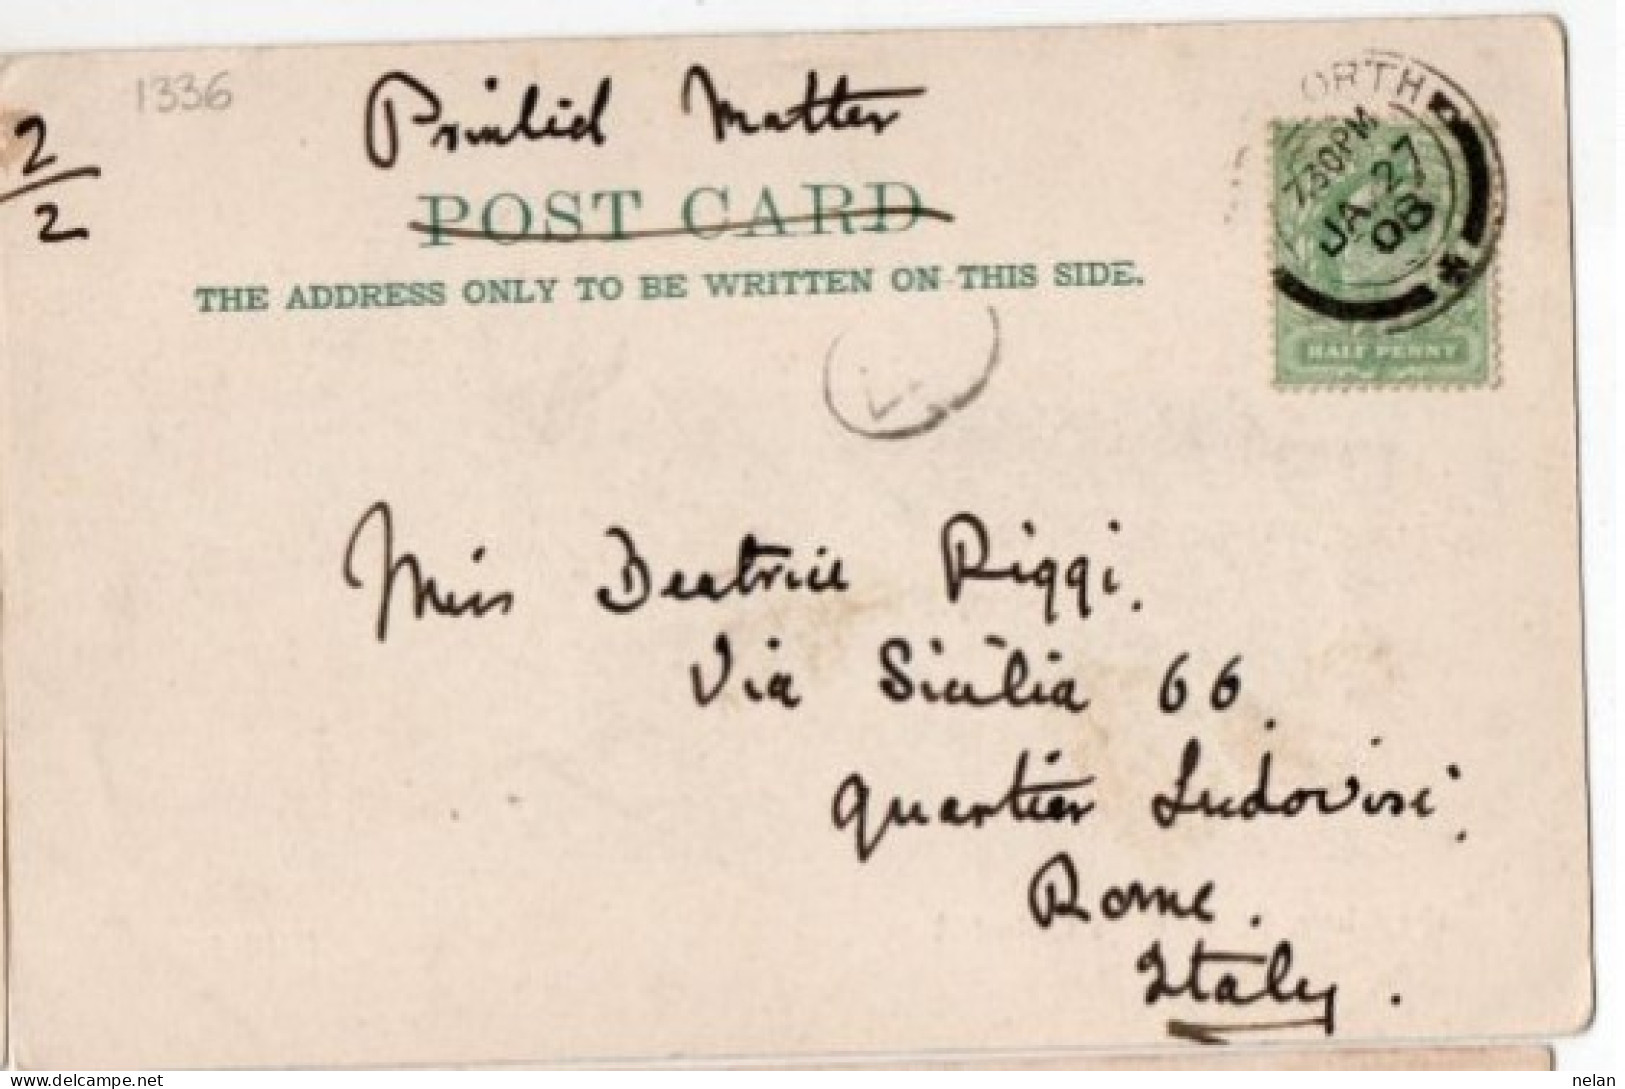 1336
2/2
Printed Matter
POST CARD
THE ADDRESS ONLY TO BE WRITTEN ON THIS SIDE.
ORTH
7.30PM
JA 27
08
HALF PENNY
Miss Beatrice Riggi.
Via Sicilia 66.
Quartier Ludovisi,
Rome.
Italy.
nelan